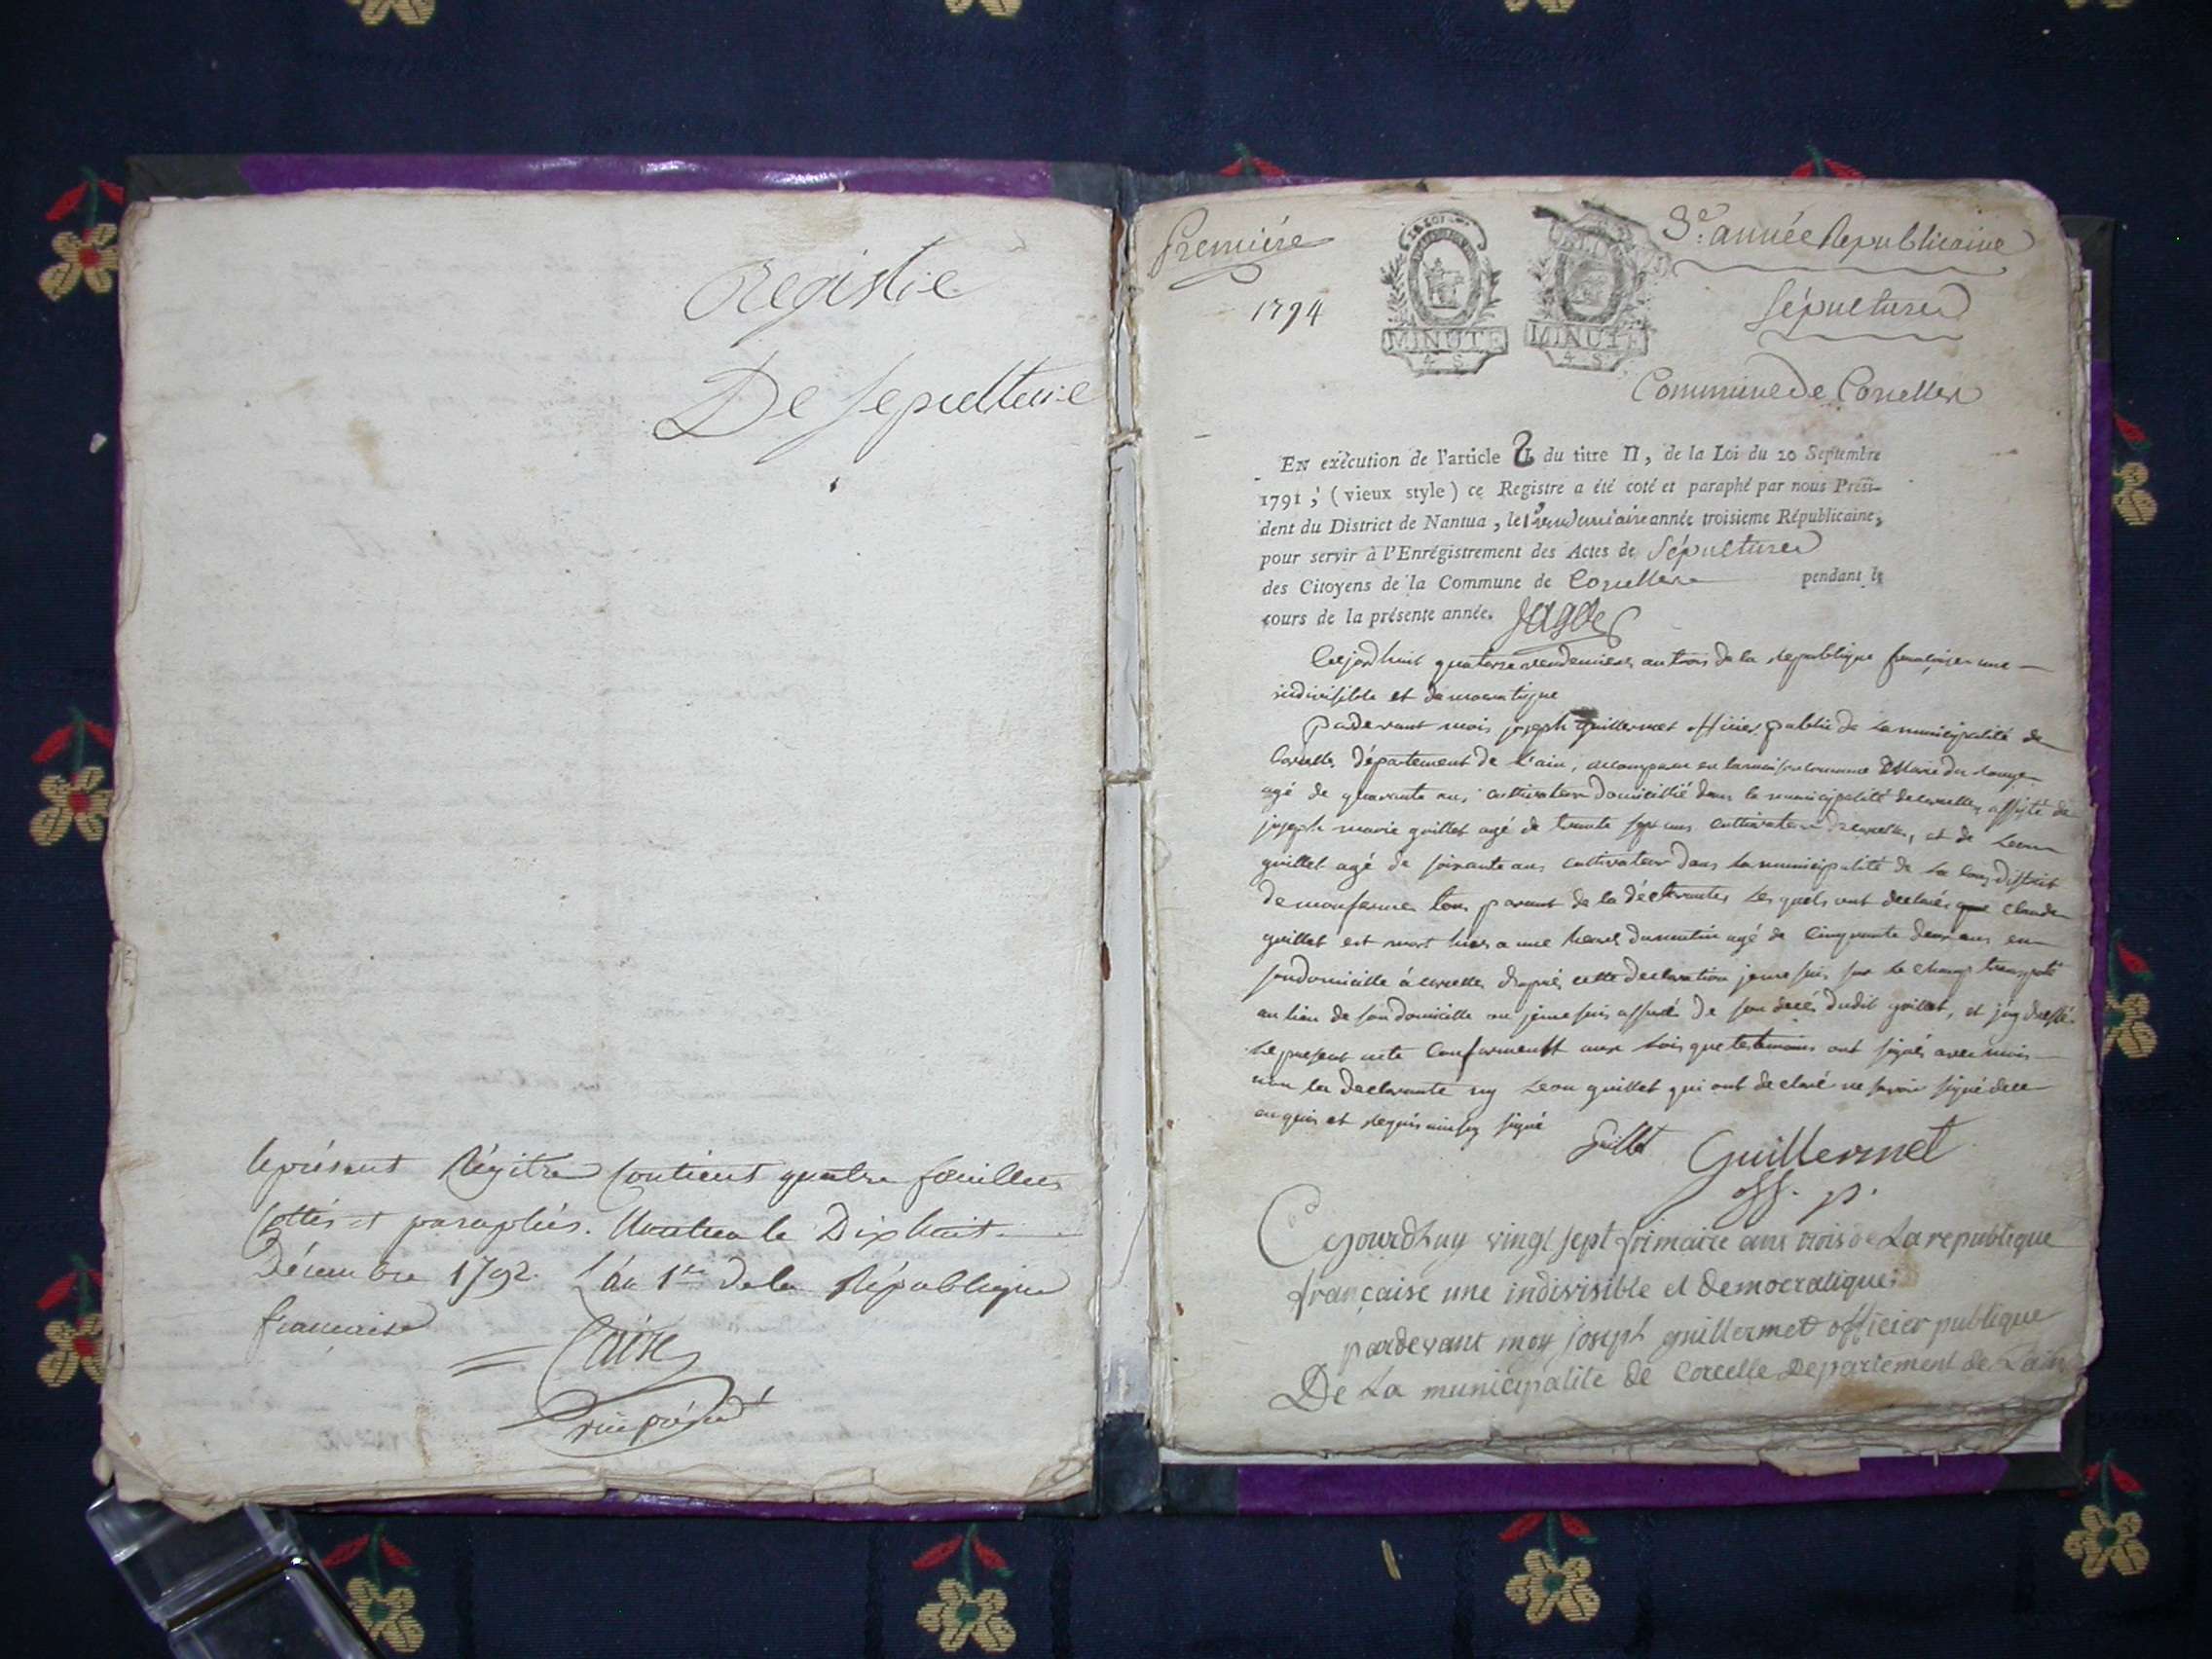 Registre
De sepulture
le présent Régitre Contient quatre feuilles
Cottés et paraphés. Nantua le Dix huit
Décembre 1792 L'an 1er de la République
francaise
vice présidt
Premiére
3e année Republicaine
1794
Sépultures
MINUTE
4 S
MINUTE
4 S
Commune de Corcelles
EN exècution de l'article 2 du titre II, de la Loi du 20 Septembre
1791, (vieux style) ce Registre a été coté et paraphé par nous Présī-
dent du District de Nantua, le 1er vendemiaire année troisieme Républicaine,
pour servir à l'Enrégistrement des Actes de Sépultures
des Citoyens de la Commune de Corcelles pendant le
cours de la présente année.
Cejordhuit quatorze vendemiere an trois de la republique francaise une
indivisible et democratique
pardevant mois joseph guillermet officier public de la municipalité de
Corcelle département de l'ain, en la maison commune
agé de quarante ans, cultivateur domicillié dans la municipalité de corcelle, assisté de
joseph marie guillet agé de trente sept ans cultivateur de corcelle, et de Leon
guillet agé de soixante ans cultivateur dans la municipalité de District
de tous parant de la déclarante Lesquels ont declarés que claude
guillet est mort hier a une heure du matin agé de cinquante deux ans en
son domicille à corcelle daprés cette declaration je me suis sur le champ transporté
au lieu de son domicille ou je me suis assuré de son decé dudit guillet, et jay dressé
le present acte Conformement aux Lois que les temoins ont signés avec mois
non la declarante ny Leon guillet qui ont declaré ne savoir signé de ce
enquis et requis ainsy signé
Guillet Guillermet
off. p.
Cejourdhuy vingt sept frimaire ans trois de La republique
française une indivisible et democratique
pardevant moy joseph guillermet officier publique
De La municipalite de Corcelle Departement de Lain